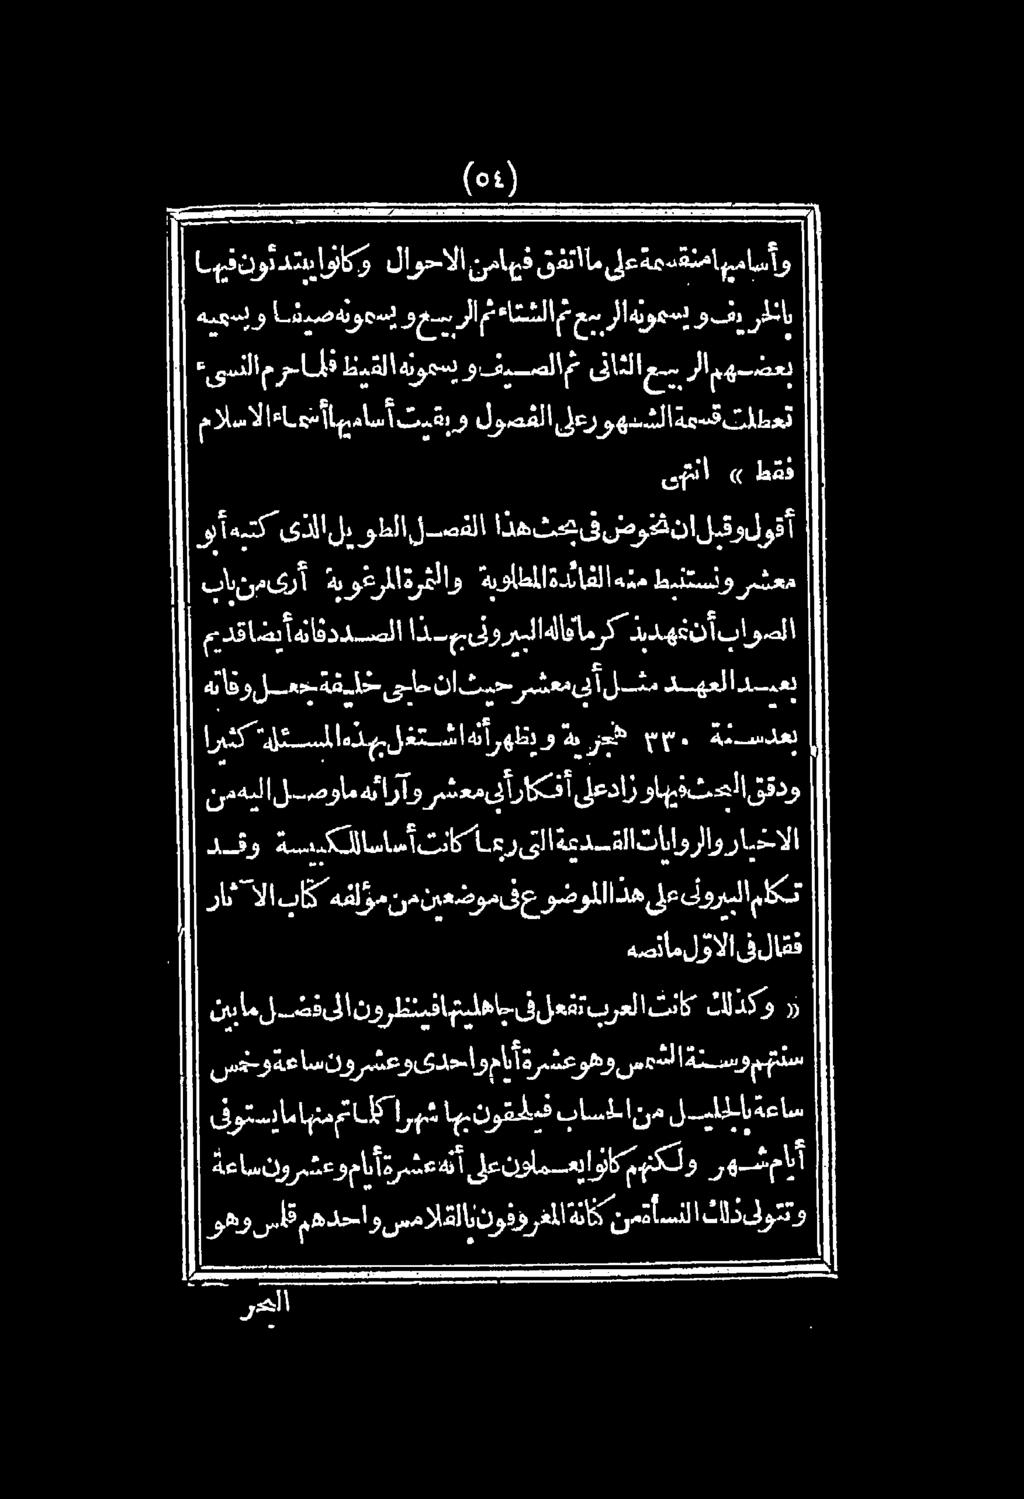 (٥٤)
وأساميها منقسمة على ما اتفق فيها من الاحوال وكانوا يبتدئون فيها
بالخريف ويسمونه الربيع ثم الشتاء ثم الربيع ويسمونه صيفا ويسميه
بعضهم الربيع الثانى ثم الصيف ويسمونه القيظ فلما حرم النسىء
تعطلت قسمة الشهور على الفصول وبقيت أساميها أسماء الاسلام
فقط » انتهى
أقول وقبل ان نخوض فى بحث هذا الفصل الطويل الذى كتبه أبو
معشر ونستنبط منه الفائدة المطلوبة والثمرة المرغوبة أرى من باب
الصواب أن نمهد بذكر ما قاله البيرونى بهذا الصدد فانه أيضا قديم
بعيد العهد مثل أبى معشر حيث ان حاجى خليفة جعل وفاته
بعد سنة ٣٣٠ هجرية ويظهر أنه اشتغل بهذه المسئلة كثيرا
ودقق البحث فيها وزاد على أفكار أبى معشر وآرائه ما وصل اليه من
الاخبار والروايات القديمة التى ربما كانت أساسا للكبيسة وقد
تكلم البيرونى على هذا الموضوع فى موضعين من مؤلفه كتاب الآثار
فقال فى الاوّل مانصه
« وكذلك كانت العرب تفعل فى جاهليتها فينظرون الى فضل ما بين
سنتهم وسنة الشمس وهو عشرة أيام واحدى وعشرون ساعة وخمس
ساعة بالجليل من الحساب فيلحقون بها شهرا كلما تم منها ما يستوفى
أيام شهر ولكنهم كانوا يعملون على أنه عشرة أيام وعشرون ساعة
وتتولى ذلك النسأة من كنانة المعروفون بالقلامس واحدهم قلمس وهو
البحر